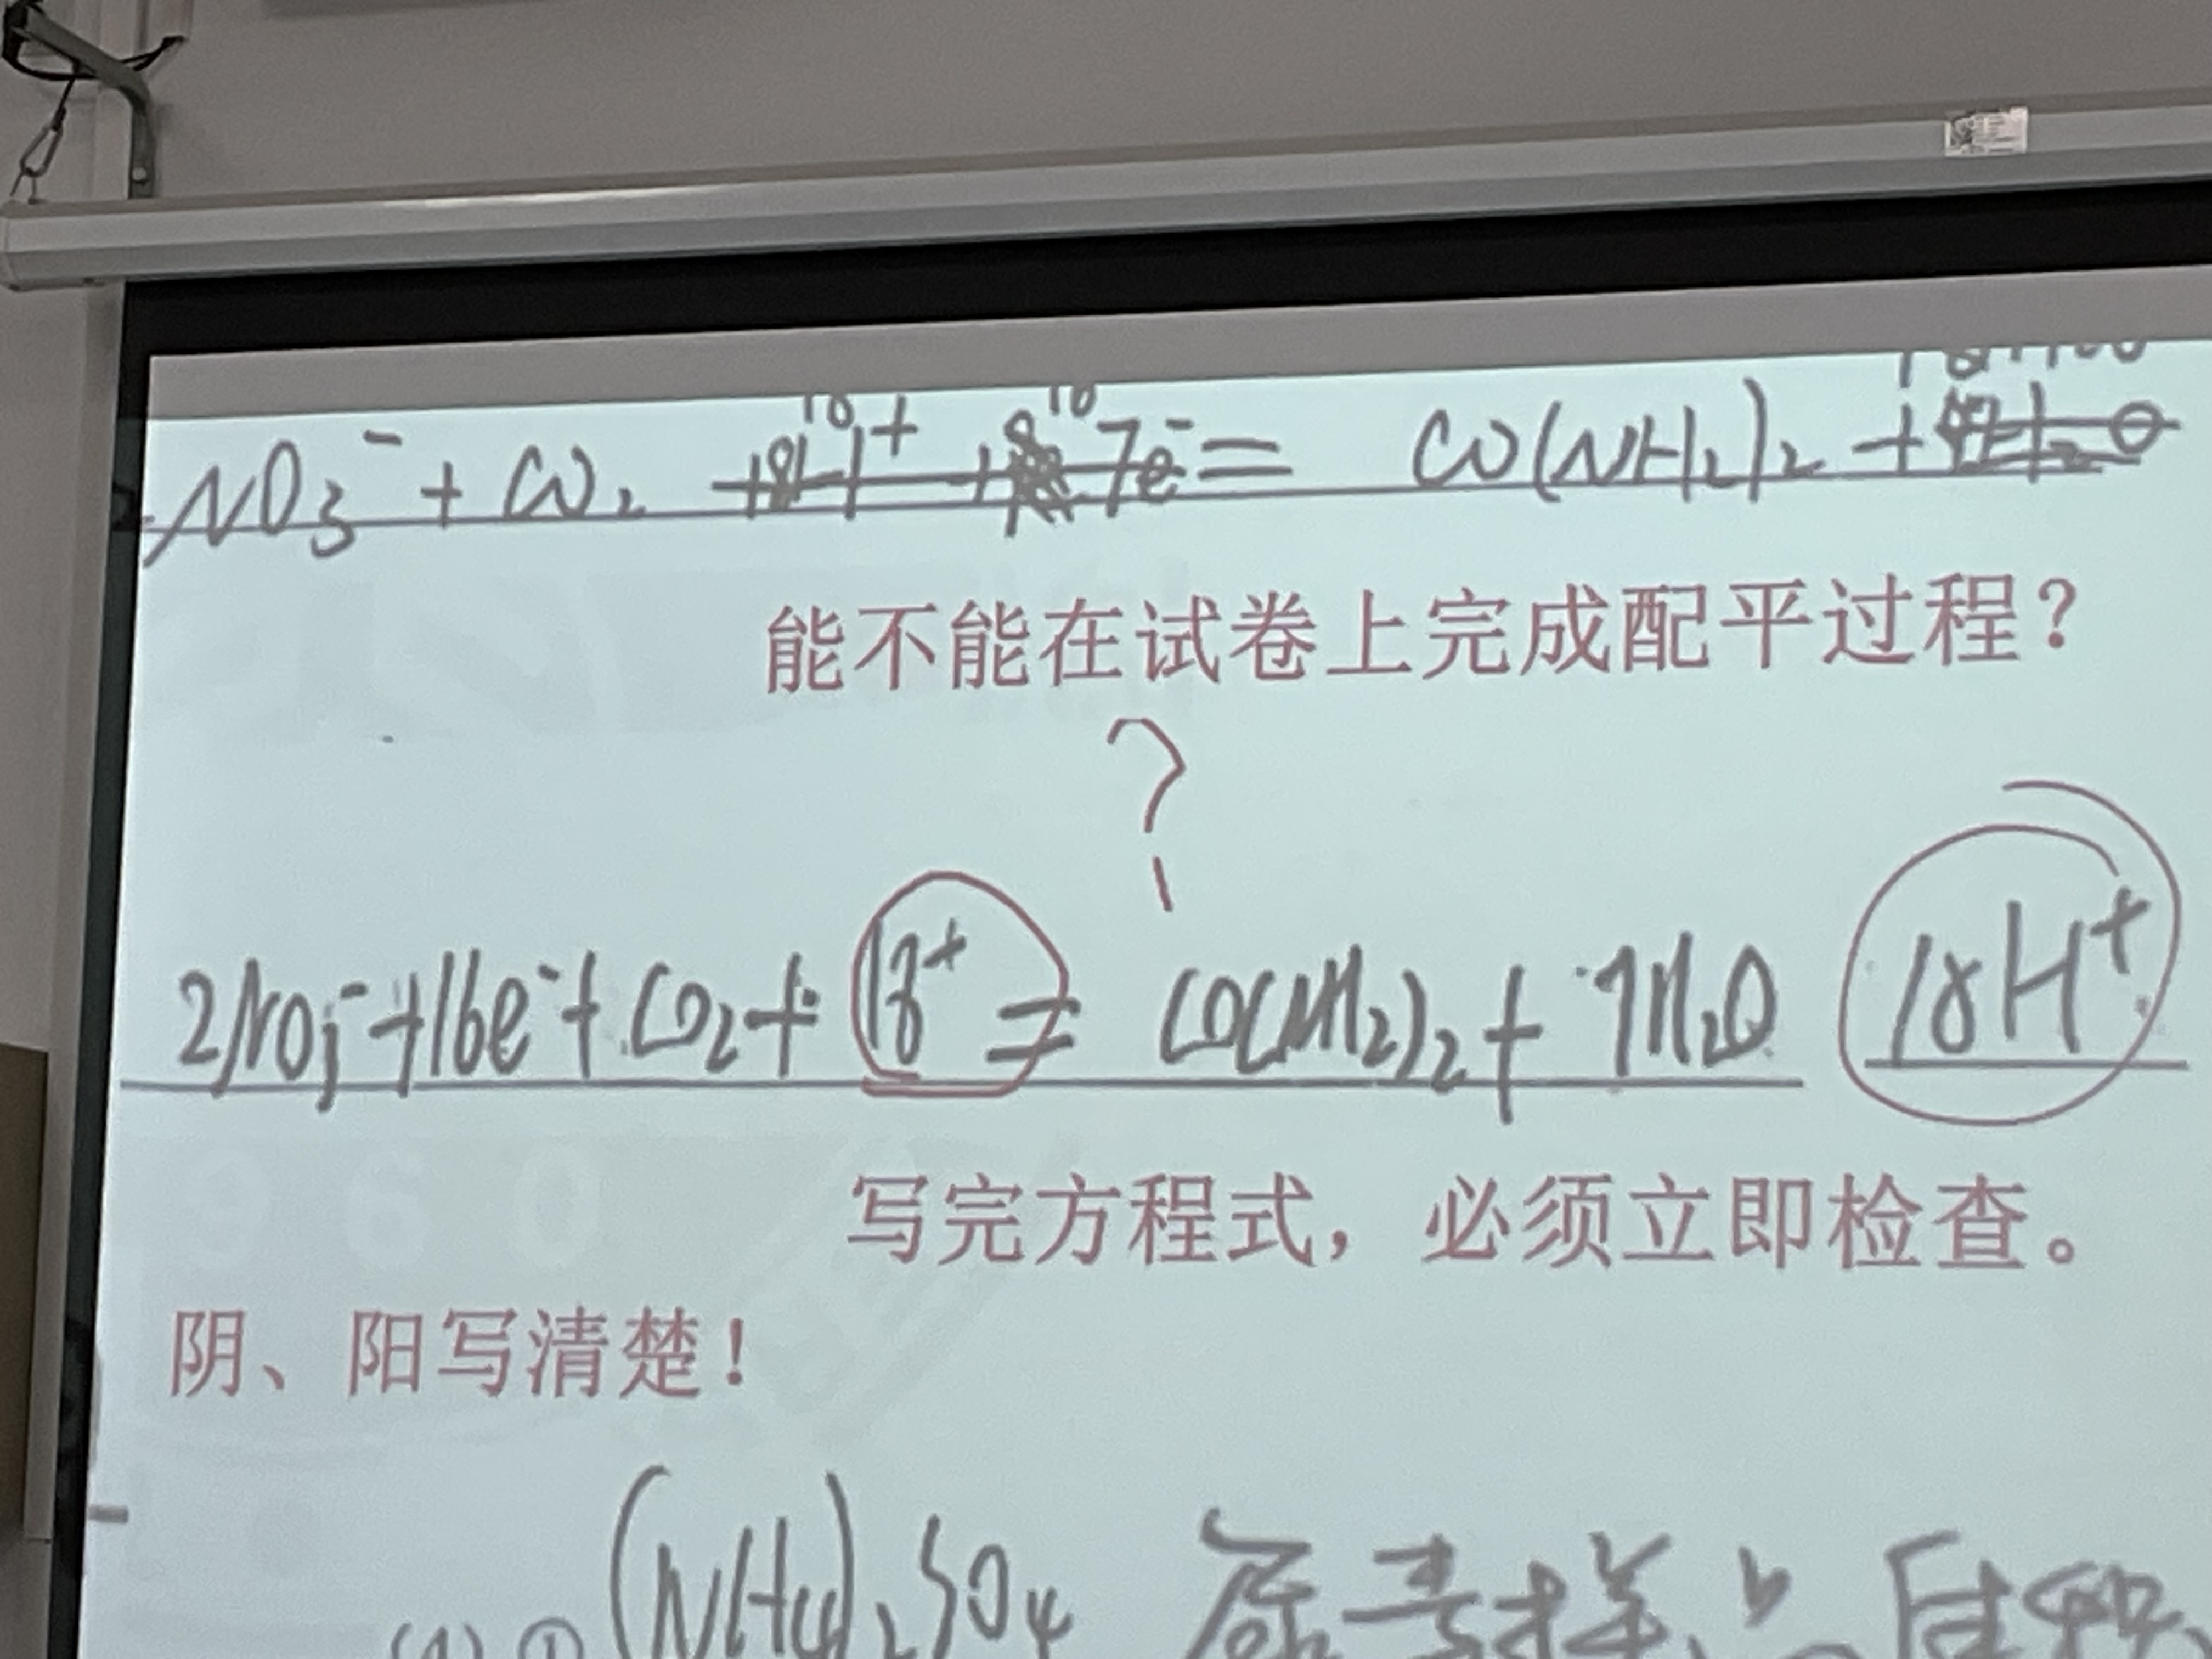 NO₃⁻ + CO₂ = CO(NH₂)₂ +
能不能在试卷上完成配平过程？
?
2NO₃⁻+16e⁻+CO₂+18⁺= CO(NH₂)₂+7H₂O 18H⁺
写完方程式，必须立即检查。
阴、阳写清楚！
(NH₄)₂SO₄ 尿素样品